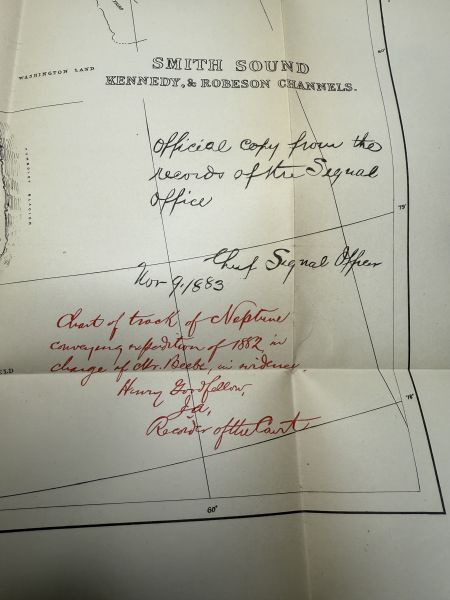 WASHINGTON LAND
SMITH SOUND
KENNEDY, & ROBESON CHANNELS.
80°
HUMBOLDT GLACIER
Official copy from the
records of the Signal
Office
79°
Chief Signal Officer
Nov 9, 1883
Chart of track of Neptune
conveying expedition of 1882, in
charge of Mr. Beebe, in evidence.
Henry Goodfellow,
J.A,
Recorder of the Court
78°
60°